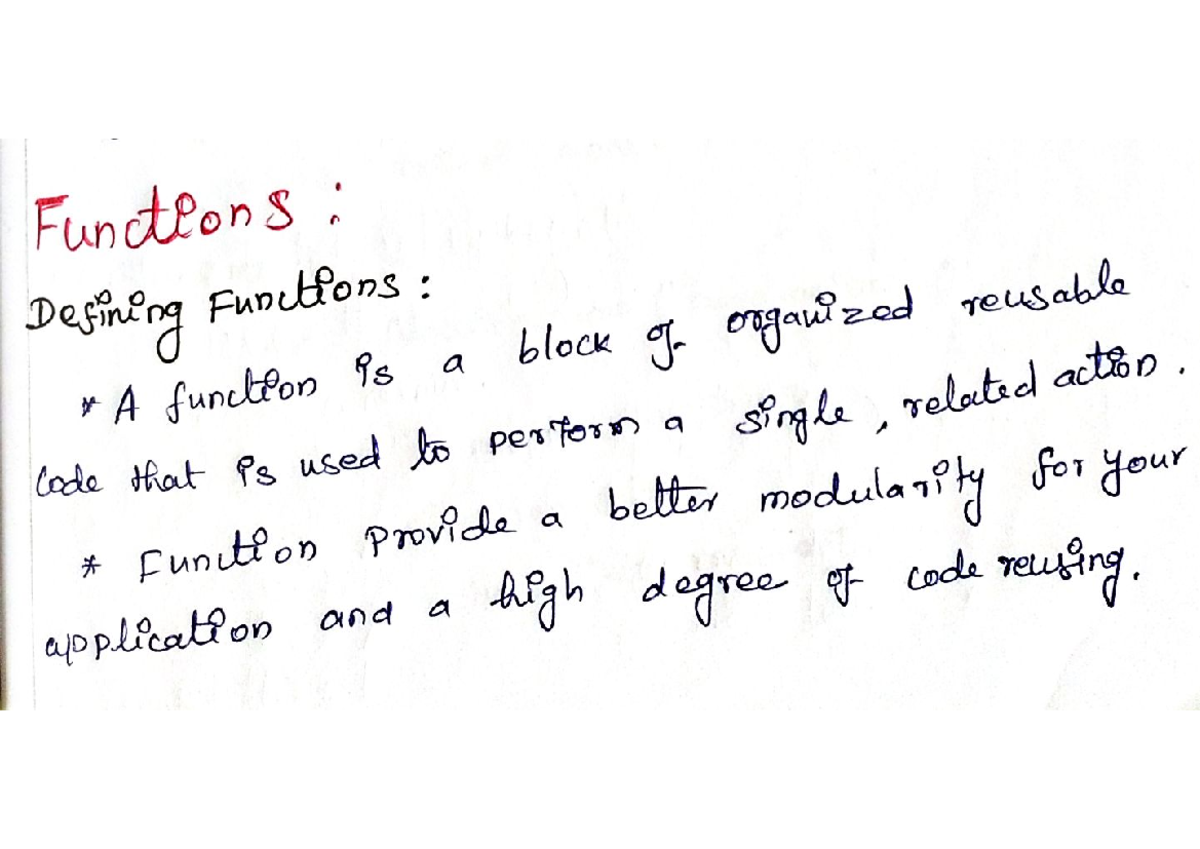 Functions :
Defining Functions :
* A function is a block of organized reusable
code that is used to perform a single, related action.
* Function provide a better modularity for your
application and a high degree of code reusing.